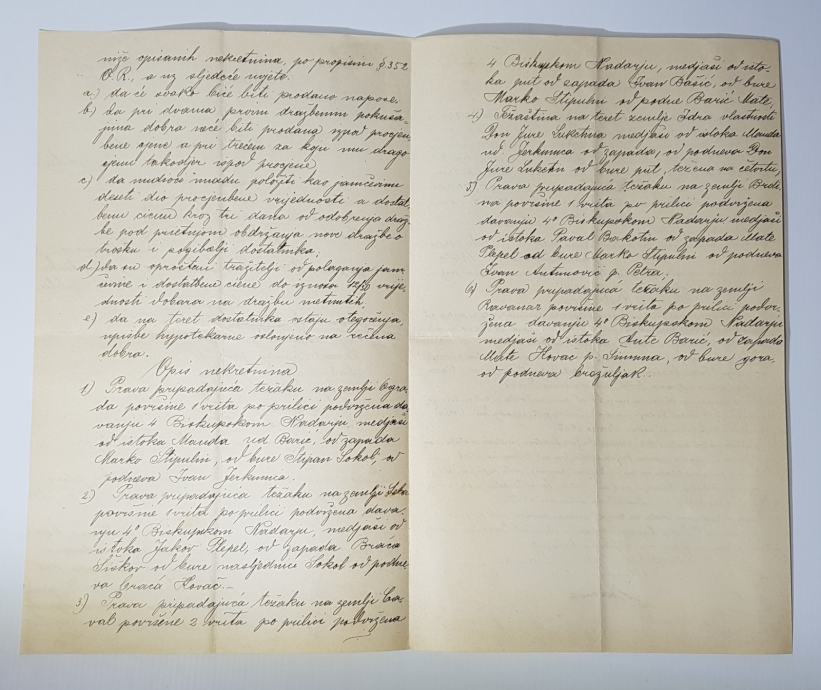 niže opisanih nekretnina, po propisim § 352
O.R., a uz sljedeće uvjete.
a.) da će svako biće biti prodano napose.
b.) da pri dvama prvim dražbenim pokusa-
jima dobra neće biti prodana izpod procjen-
bene cjene a pri trećem za koju mu drago
cjenu takodjer izpod procjene
c) da nudioci imadu položiti kao jamčevinu
deseti dio procjenbene vrijednosti a dostat-
benu cienu kroz tri dana od odobrenja draž-
be pod prietnjom obdržanja nove dražbe o
trošku i pogibelji dostatnika.
d.) da su oprošteni tražitelji od polaganja jam-
čevine i dostatbene ciene do iznosa vrije-
dnosti dobara na dražbu metnutih.
e) da na teret dostatnika ostaju otegoćenja,
upisbe hypotekarne oslonjeno na rečena
dobra.
Opis nekretnina
1) Prava pripadajuća težaku na zemlji Ogra-
da površine 1 vrita po prilici podvržena da-
vanju 4 Biskupskom Nadarju, medjaši
od istoka Manda ud Barić, od zapada
Marko Stipulin, od bure Stipan Sokol, od
podneva Ivan Jerkunica.
2) Prava pripadajuća težaku na zemlji
površine 1 vrita po prilici podvržena dava-
nju 4º Biskupskom Nadarju, medjaši od
istoka Jakov Plepel, od zapada Braća
Šiškov od bure nasljednici Sokol od podne-
va braća Kovač.-
3) Prava pripadajuća težaku na zemlji
površine 2 vrita po prilici podvržena
4 Biskupskom Nadarju, medjaši od isto-
ka put od zapada Ivan Bašić, od bure
Marko Stipulin od podne Barić Mate,
4) Težaština na teret zemlji Idra vlasnosti
Don Jure medjaši od istoka Manda
ud Jerkunica od zapada, od podneva Don
Jure od bure put, težena na četvrtu,
5) Prava pripadajuća težaku na zemlji Brde
na površine 1 vrita po prilici podvržena
davanju 4º Biskupskom Nadarju medjaši
od istoka Paval od zapada Mate
Plepel od bure Marko Stipulin od podneva
Ivan Antunović p. Petra.
6) Prava pripadajuća težaku na zemlji
Ravanar površine 1 vrita po prilici podvr-
žena davanju 4º Biskupskom Nadarju
medjaši od istoka Ante Barić, od zapada
Mate Kovac p. Šimuna, od bure gora,
od podneva brežuljak.